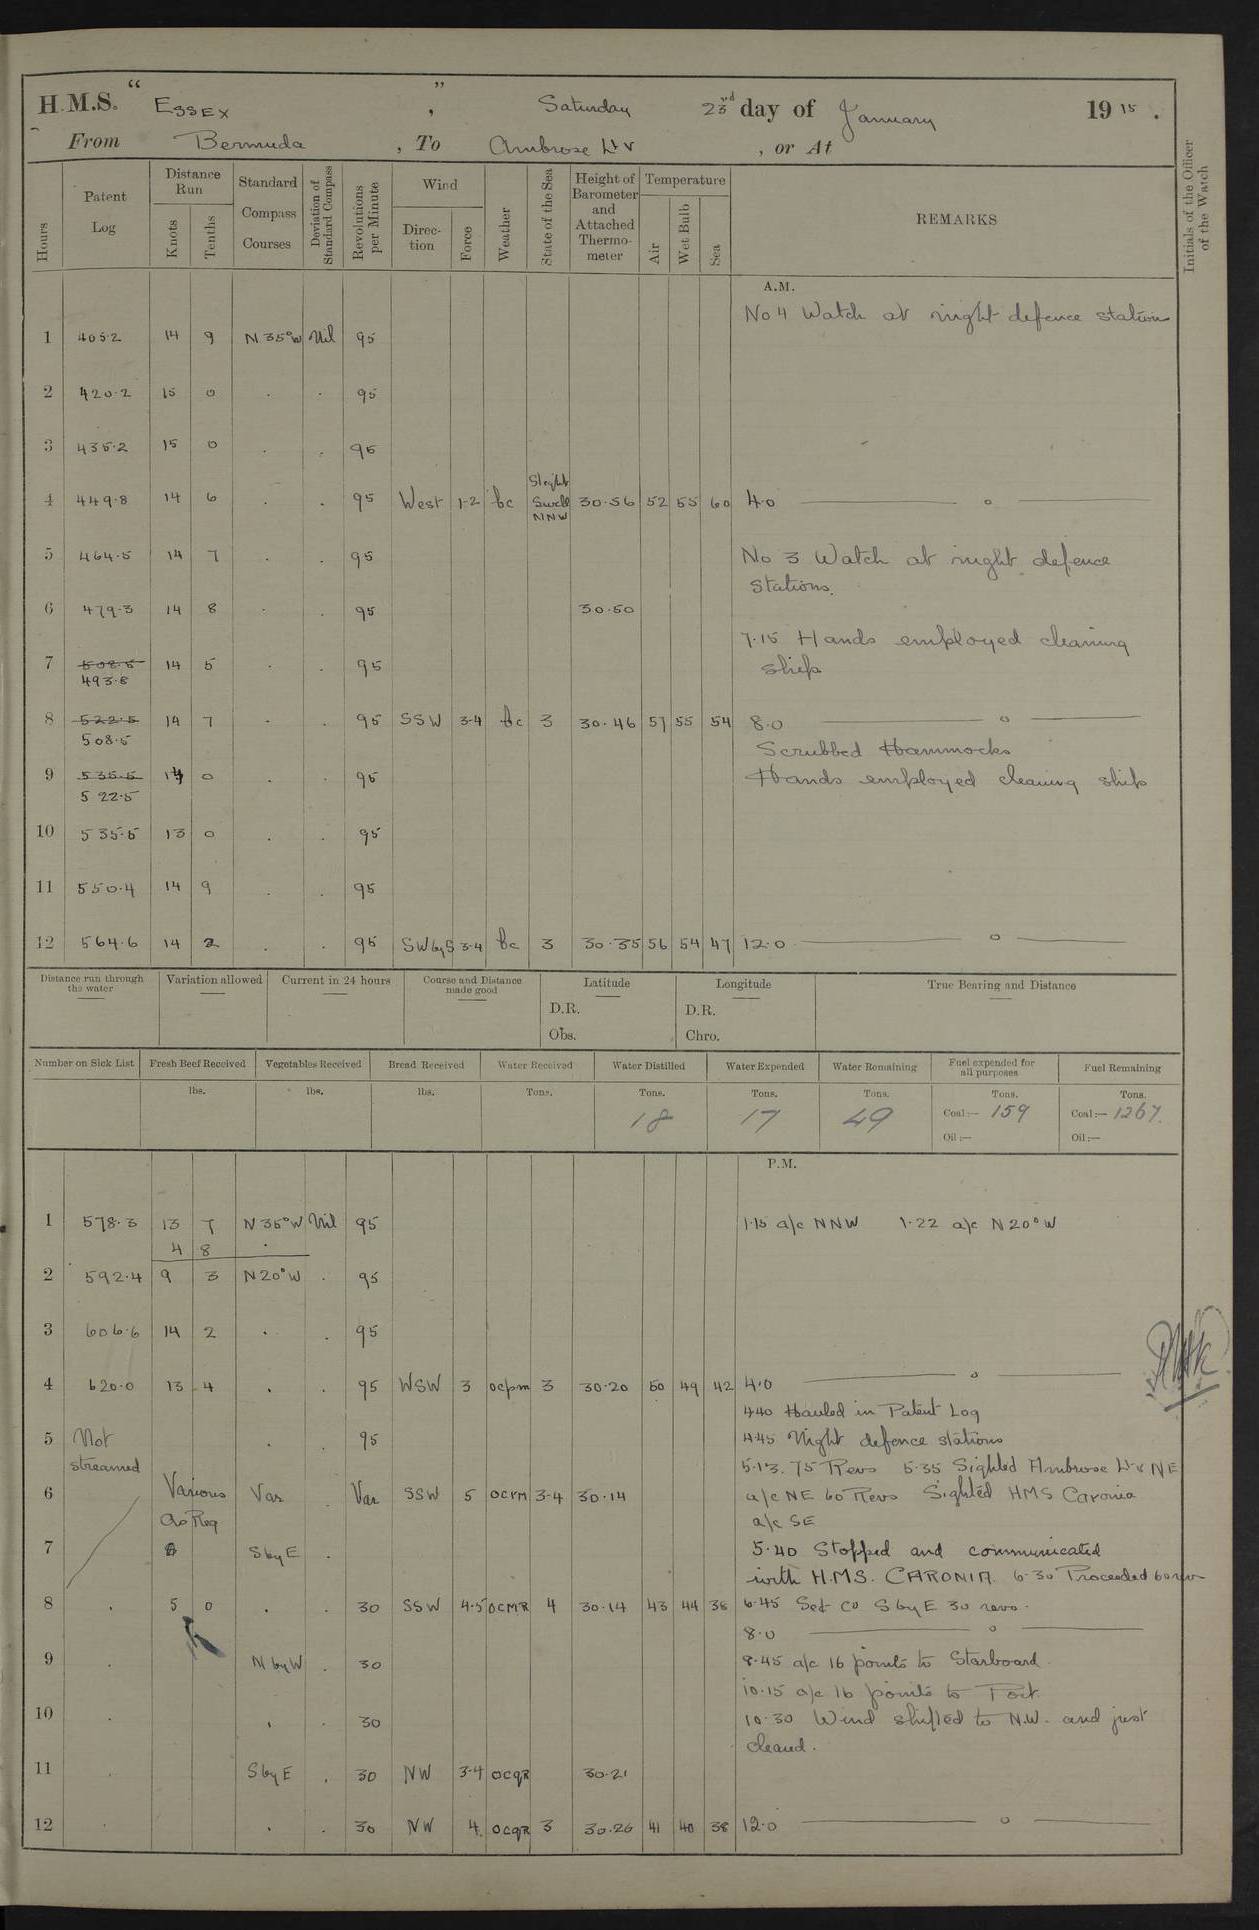 H.M.S. " ESSEX ", Saturday 23rd day of January 1915.
From Bermuda, To Ambrose Lt V, or At
Hours | Patent Log | Distance Run Knots Tenths | Standard Compass Courses | Deviation of Standard Compass | Revolutions per Minute | Wind Direction Force | Weather | State of the Sea | Height of Barometer and Attached Thermometer | Temperature Air Wet Bulb Sea | REMARKS | Initials of the Officer of the Watch
A.M.
No 4 Watch at night defence station
1 405.2 14 9 N 35° W Nil 95
2 420.2 15 0 . . 95
3 435.2 15 0 . . 95
4 449.8 14 6 . . 95 West 1-2 bc Slight Swell NNW 30.56 52 55 60 4.0 — o —
5 464.5 14 7 . . 95 No 3 Watch at night defence
Stations.
6 479.3 14 8 . . 95 30.50
7.15 Hands employed cleaning
7 508.5 14 5 . . 95 ship
493.8
8 522.5 14 7 . . 95 SSW 3-4 bc 3 30.46 57 55 54 8.0 — o —
508.5
Scrubbed Hammocks
9 535.5 14 0 . . 95 Hands employed cleaning ship
522.5
10 535.5 13 0 . . 95
11 550.4 14 9 . . 95
12 564.6 14 2 . . 95 SW by S 3-4 bc 3 30.35 56 54 47 12.0 — o —
Distance run through the water | Variation allowed | Current in 24 hours | Course and Distance made good | Latitude | Longitude | True Bearing and Distance
D.R. D.R.
Obs. Chro.
Number on Sick List | Fresh Beef Received | Vegetables Received | Bread Received | Water Received | Water Distilled | Water Expended | Water Remaining | Fuel expended for all purposes | Fuel Remaining
lbs. lbs. lbs. Tons. Tons. Tons. Tons. Tons. Tons.
18 17 49 Coal:— 159 Coal:— 1267.
Oil:— Oil:—
P.M.
1 578.3 13 7 N 35° W Nil 95 1.15 a/c NNW 1.22 a/c N 20° W
4 8 .
2 592.4 9 3 N 20° W . 95
3 606.6 14 2 . . 95
4 620.0 13 4 . . 95 WSW 3 ocpm 3 30.20 50 49 42 4.0 — o —
4.40 Hauled in Patent Log
5 Not . . 95 4.45 Night defence stations
streamed 5.13. 75 Revs 5.35 Sighted Ambrose Lt V NE
6 Various Var . Var SSW 5 ocrm 3-4 30.14 a/c NE 60 Revs Sighted HMS Caronia
as Req a/c SE
7 S by E . 5.40 Stopped and communicated
with H.M.S. CARONIA. 6.30 Proceeded 60 rev
8 . 5 0 . . 30 SSW 4.5 OCMR 4 30.14 43 44 38 6.45 Set Co S by E 30 revs.
8.0 — o —
9 . N by W . 30 8.45 a/c 16 points to Starboard.
10.15 a/c 16 points to Port.
10 . . . 30 10.30 Wind shifted to N.W. and just
cleared.
11 . S by E . 30 NW 3.4 ocqR 30.21
12 . . . 30 NW 4 ocqR 3 30.26 41 40 38 12.0 — o —